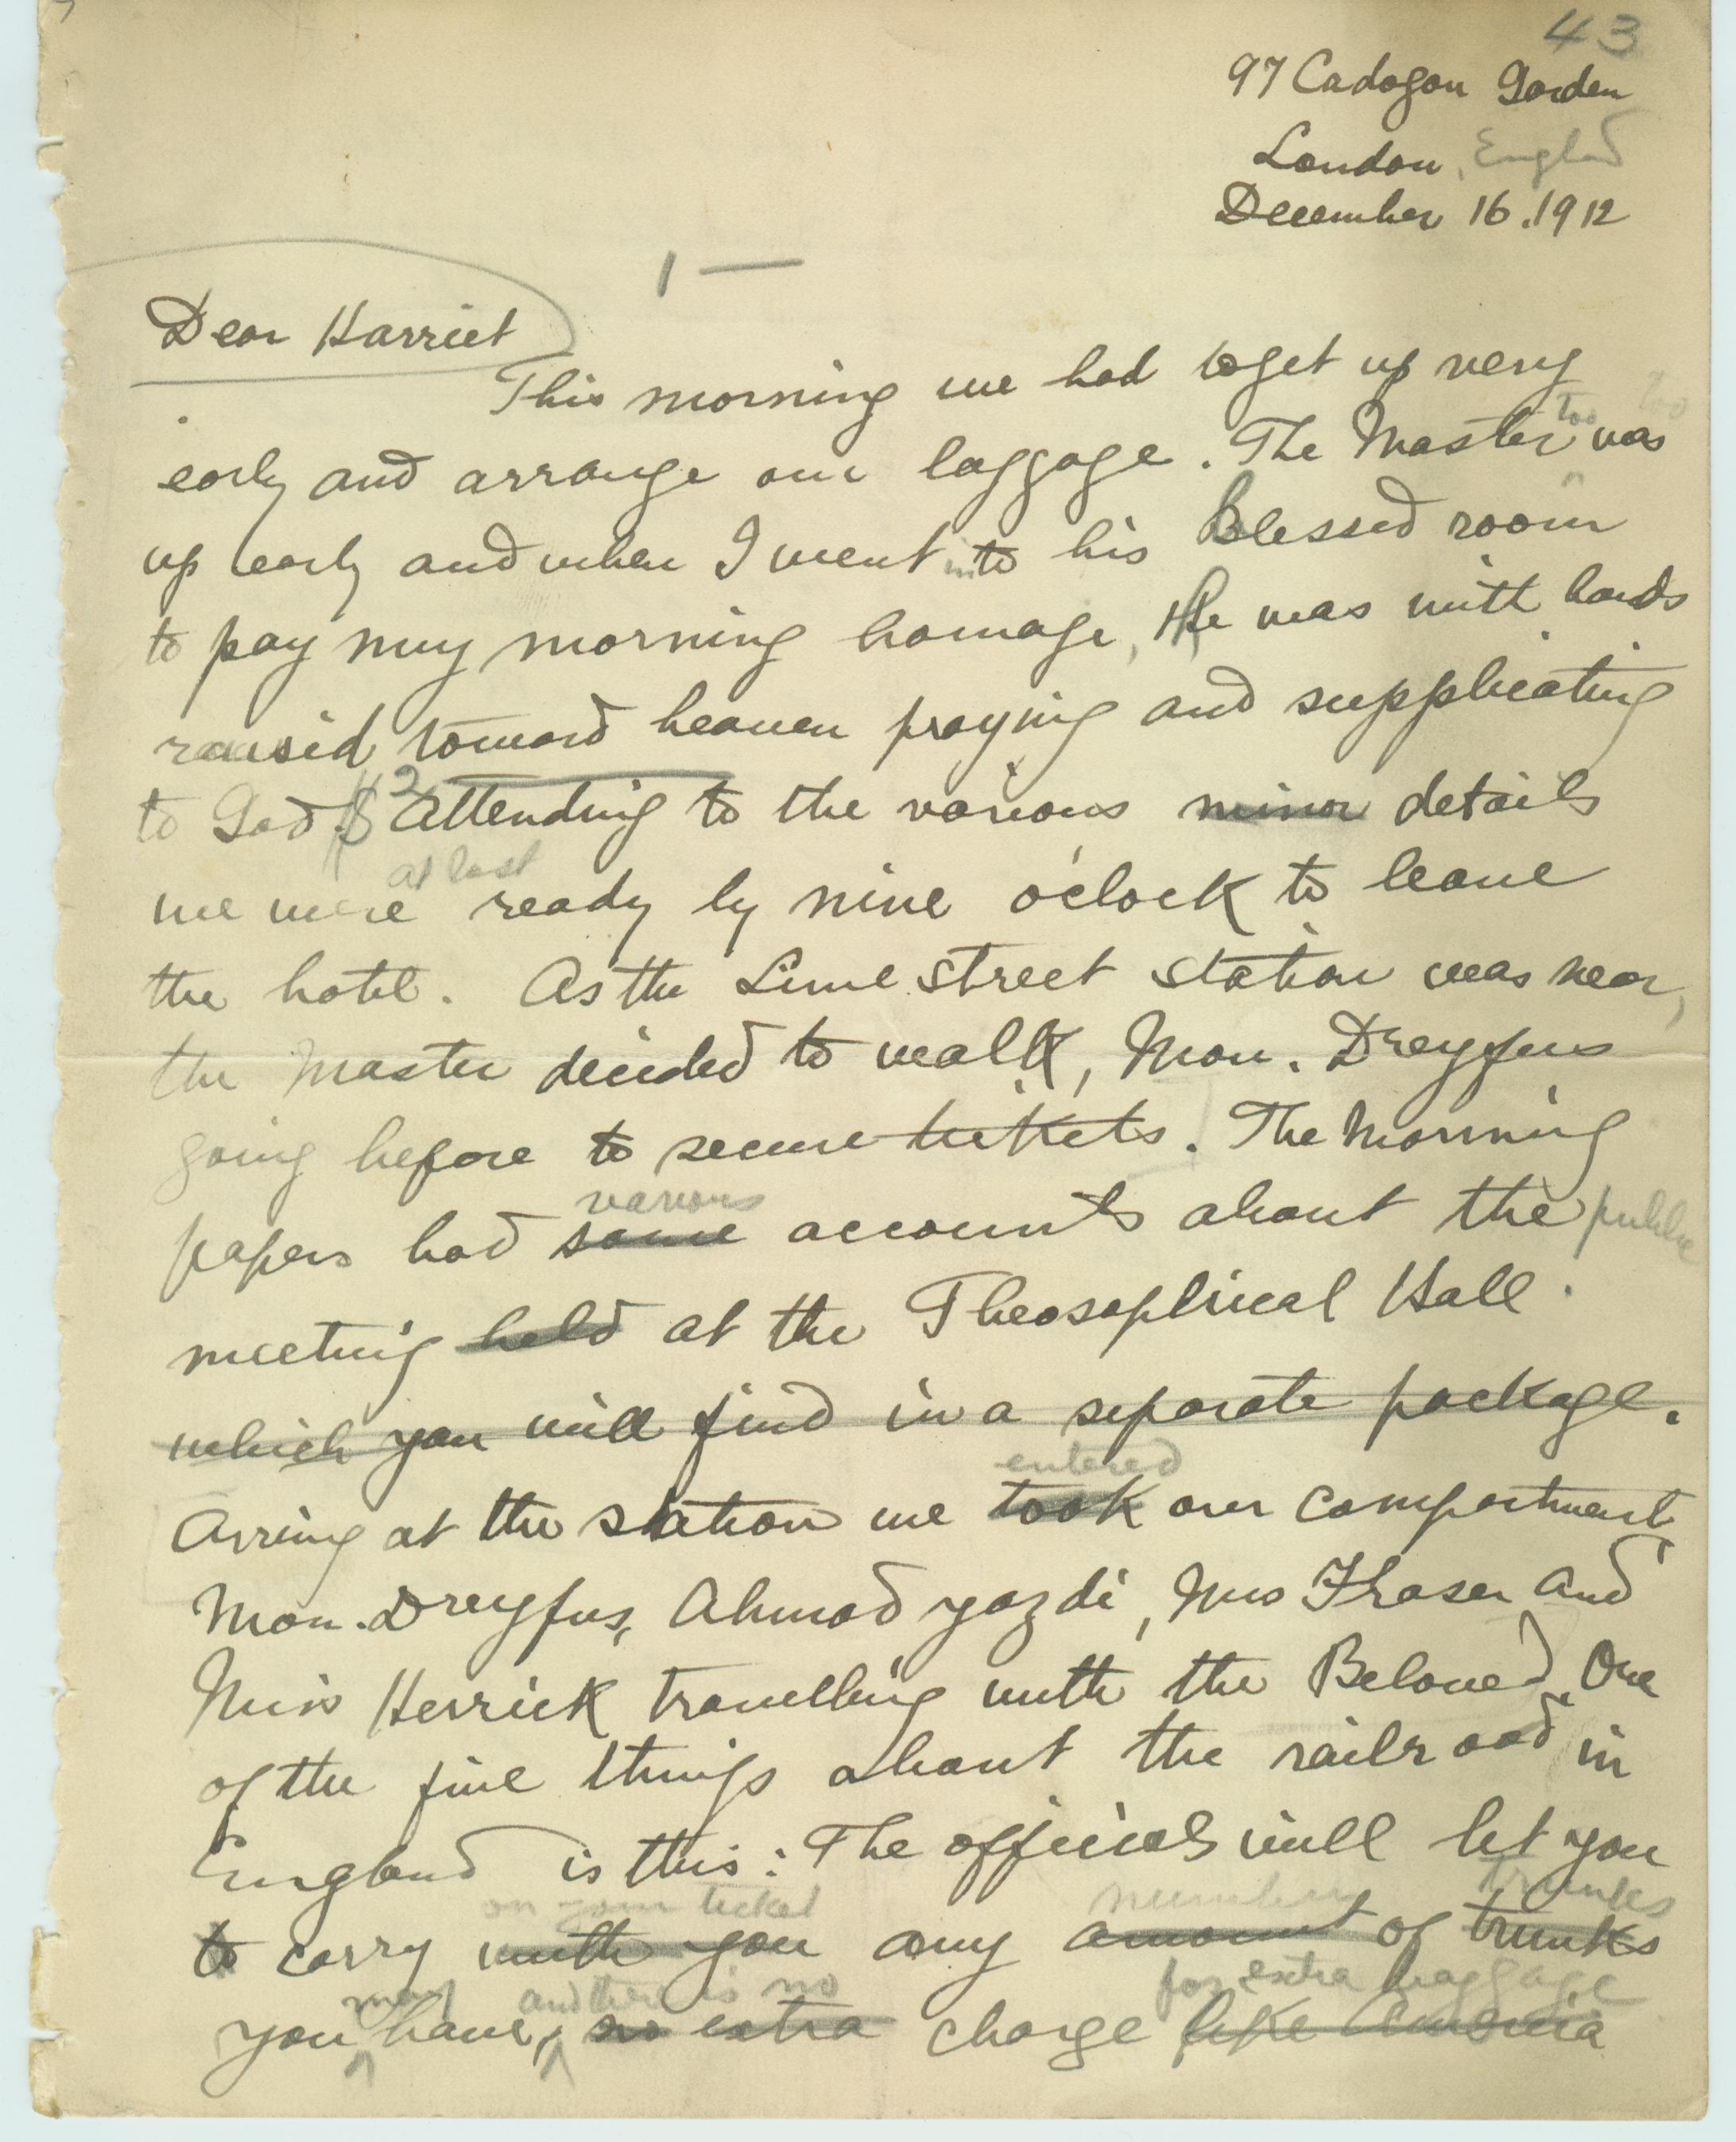 43
97 Cadogan Garden
London, England
December 16. 1912
1 —
Dear Harriet
This morning we had to get up very
early and arrange our laggage. The Master too was
up early and when I went into his Blessed room
to pay my morning homage, He was with hands
raised toward heaven praying and supplicating
to God. Attending to the various minor details
at last
we were ready by nine o'clock to leave
the hotel. As the Lime Street Station was near,
the Master decided to walk, Mon. Dreyfus
going before to secure tickets. The Morning
various
papers had some accounts about the public
meeting held at the Theosophical Hall.
which you will find in a separate package.
entered
Arriving at the station we took our compartment
Mon. Dreyfus, Ahmad Yazdi, Mrs Fraser and
Miss Herrick travelling with the Beloved. One
of the fine things about the railroad in
England is this: The officials will let you
on your ticket number trunks
to carry with you any amount of trunks
may and there is no for extra baggage
you have, no extra charge like America